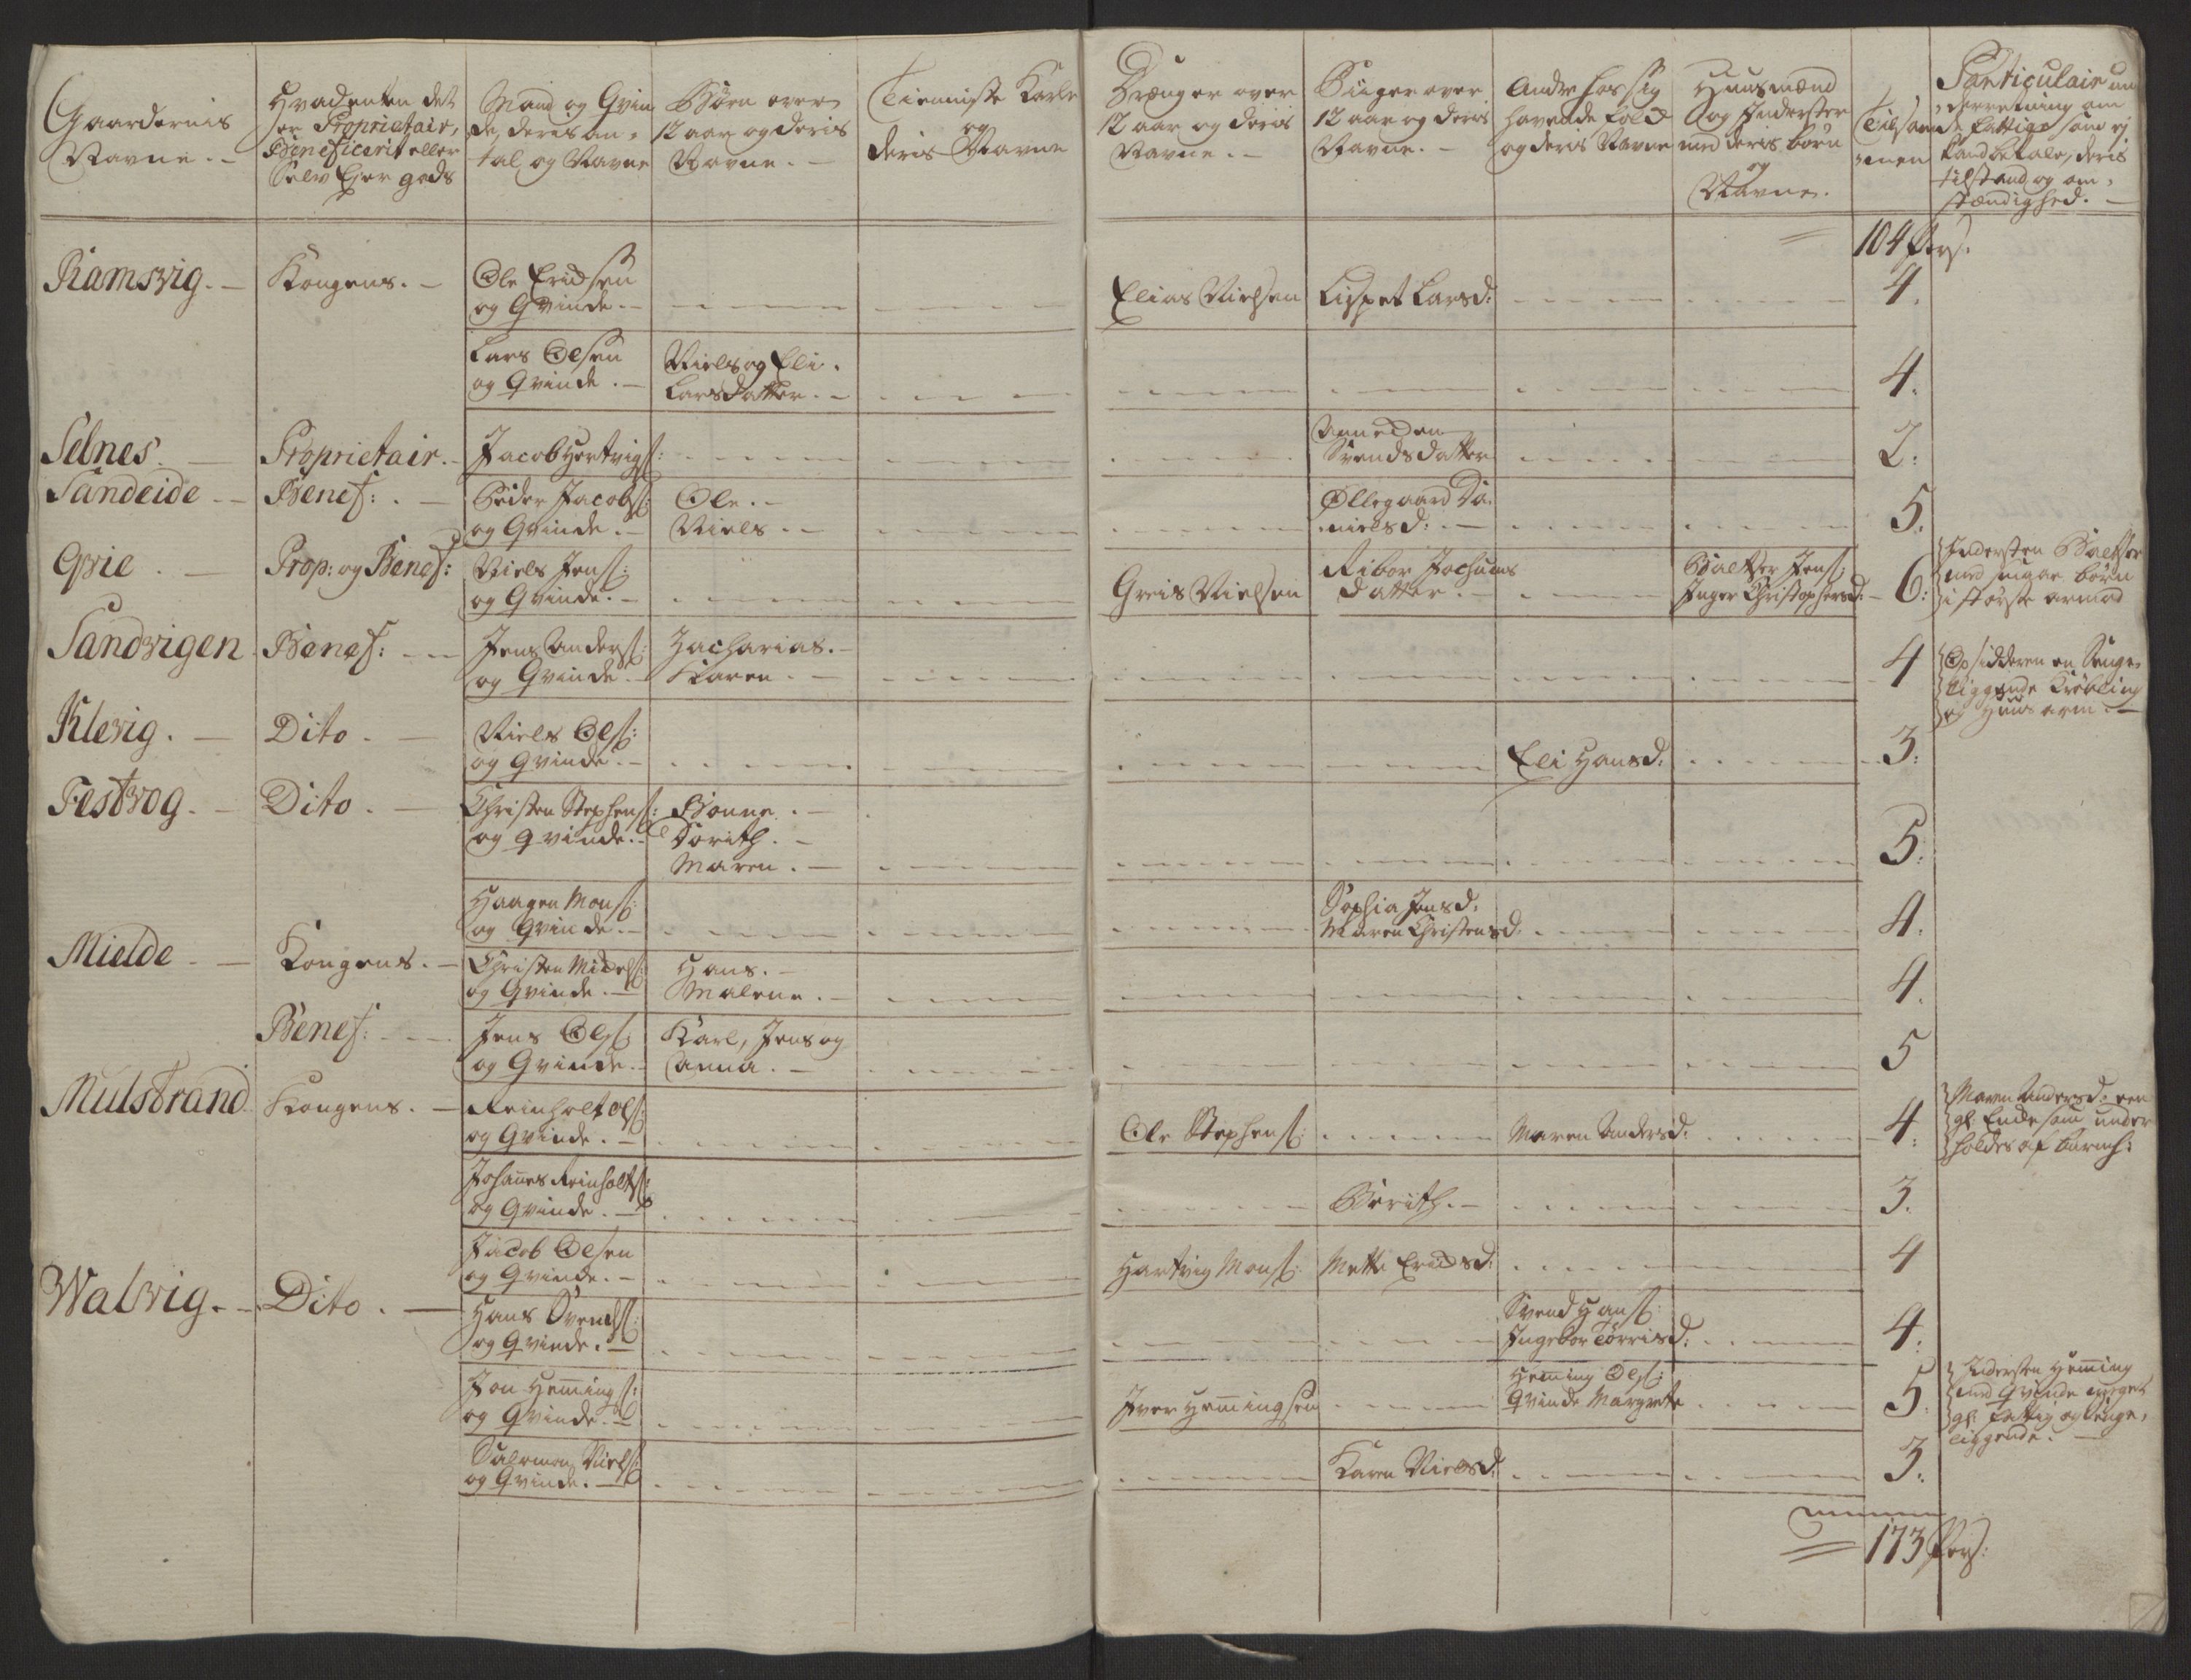 Gaardernis
Navne. -
Hvadenten det
er Proprietair,
Beneficerit eller
Selv Ejer gods
Mand og Qvin
de, deris an-
tal og Navne
Børn over
12 aar og deris
Navne. -
Tienniste Karle
og
deris Navne
Drænger over
12 aar og deris
Navne. -
Piiger over
12 aar og deris
Navne. -
Andre hos sig
havende Folck
og deris Navne
Huusmænd
og Inderster
med deris børn
og
Navne.
Tilsam
men
Particulair un-
derretning om
de fattige som ej
kand betale, deris
tilstand og om-
stændighed. -
104 Pers:
Ramsvig. - Kongens. - Ole Ericksen
og Qvinde. - Elias Nielsen Lispet Larsd: 4.
Lars Olsen
og Qvinde. - Niels og Eli.
Larsdatter. - 4.
Selnes. - Proprietair. - Jacob Hertvigs: Svendsdatter 2:
Sandeide - Benef: . - Peder Jacobs:
og Qvinde. - Ole. -
Niels. - Ollegaard Da-
nielsd: - 5.
Qvie. - Prop: og Benef: Niels Jens:
og Qvinde. - Greis Nielsen Ribor Jochums
datter. - Baltzer Jens:
Inger Christophersd: - 6: Indersten Baltzer
med mange børn
i største armod
Sandvigen Benef: - Jens Anders:
og Qvinde. - Zacharias. -
Karen. - 4 Opsidderen en Senge-
liggende Krøbling
og Huus arm. -
Klevig. - Dito. - Niels Ols:
og Qvinde. - Eli Hansd: 3:
Festvog. - Dito. - Christen Stephens:
og Qvinde. - Bonne. -
Dorith. -
Maren. - 5:
Haagen Mons:
og Qvinde. - Sophia Jensd:
Maren Christensd: 4.
Mielde - Kongens. - Christen Mickels:
og Qvinde. - Hans. -
Malene. - 4.
Benef: - Jens Ols:
og Qvinde. - Karl, Jens og
Anna. - 5
Mulstrand Kongens. - Reinholt Ols:
og Qvinde. - Ole Stephens: Maren Andersd: 4: Maren Andersd: een
gl: Encke som under
holdes af
Johanes Reinholts:
og Qvinde. - Berith. - 3.
Jacob Olsen
og Qvinde. - Hartvig Mons: Mette Ericksd: 4
Walvig. - Dito. - Hans Svends:
og Qvinde. - Svend Hans:
Ingebor Torrisd: 4.
Jon Hemings:
og Qvinde. - Iver Hemingsen Heming Ols:
Qvinde Margrete 5. Indersten Heming
med Qvinde meget
gl: fattig og senge-
liggende. -
Salomon Niels:
og Qvinde. - Karen Nielsd: 3.
173 Pers: